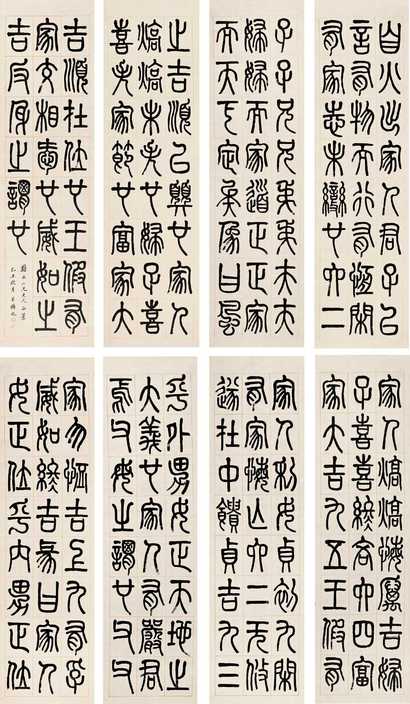 家人利女貞初九閑
有家悔亡六二无攸
遂在中饋貞吉九三
家人嗃嗃悔厲吉婦
子嘻嘻終吝六四富
家大吉九五王假有
家勿恤吉上九有孚
威如終吉彖曰家人
女正位乎內男正位
乎外男女正天地之
大義也家人有嚴君
焉父母之謂也父父
子子兄兄弟弟夫夫
婦婦而家道正正家
而天下定矣象曰風
自火出家人君子以
言有物而行有恆閑
有家志未變也六二
之吉順以巽也家人
嗃嗃未失也婦子嘻
嘻失家節也富家大
吉順在位也王假有
家交相愛也威如之
吉反身之謂也